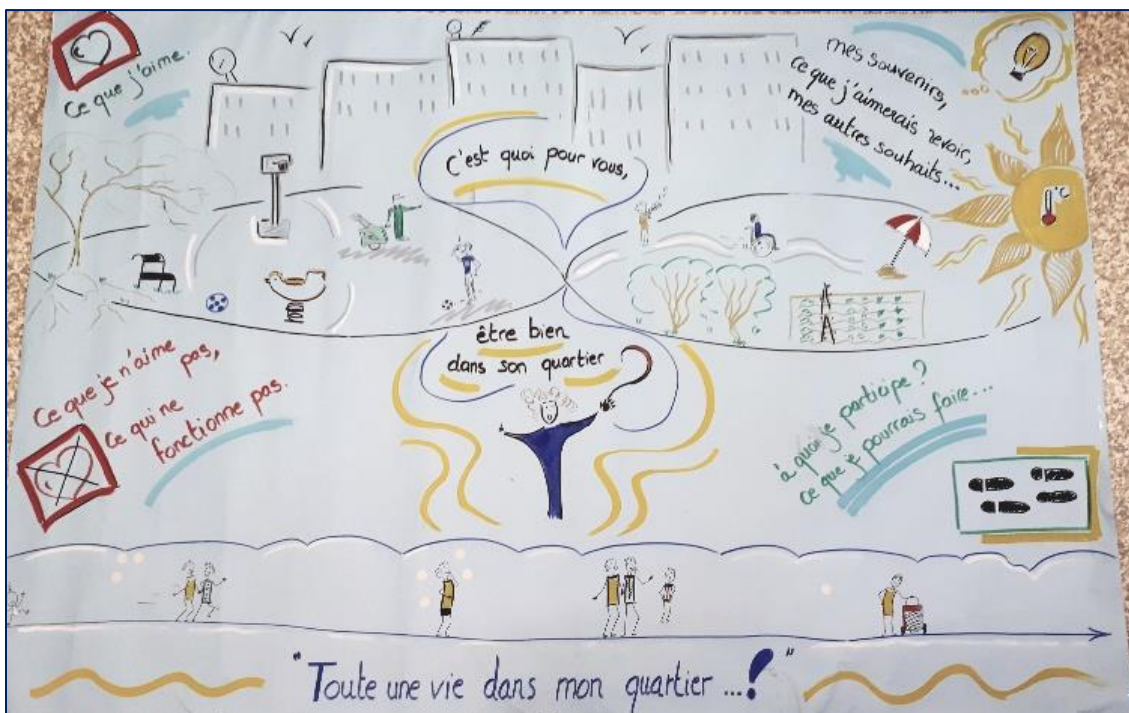 ce que j'aime.
mes souvenirs,
ce que j'aimerais revoir,
mes autres souhaits...
°C
c'est quoi pour vous,
être bien
dans son quartier
?
Ce que je n'aime
pas,
Ce qui ne
fonctionne pas.
à quoi je participe ?
ce que je pourrais faire...
"Toute une vie dans mon quartier ...!"